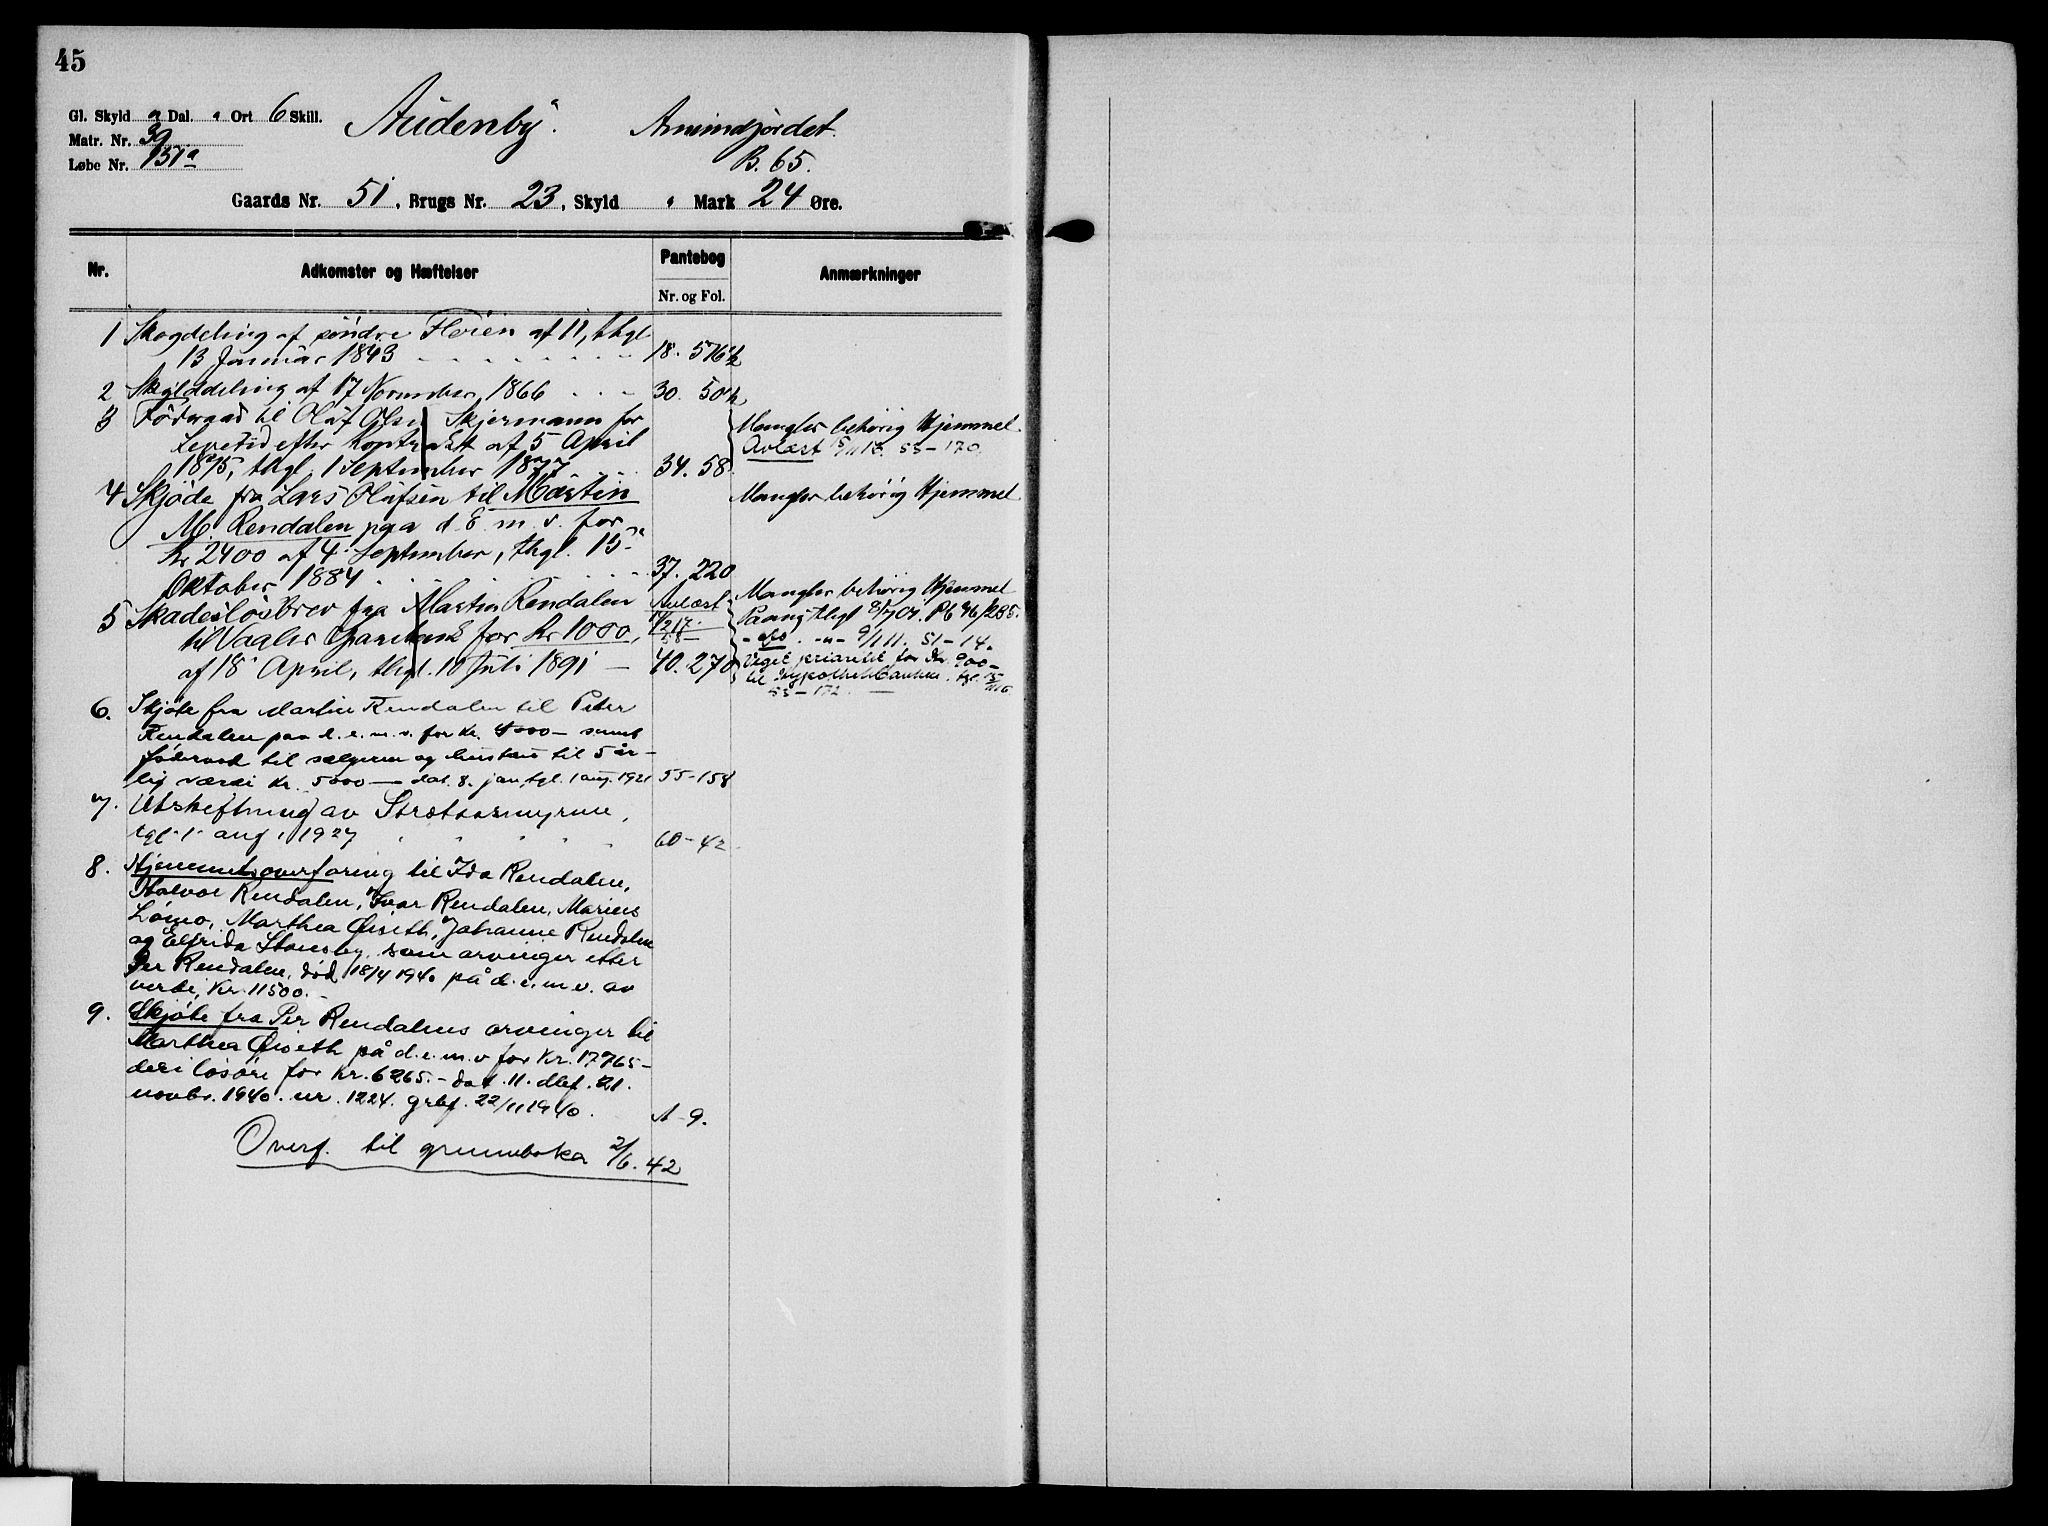 45
Gl. Skyld " Dal. " Ort 6 Skill. Audenby. Amundjordet.
Matr. Nr. 39
Løbe Nr. 151a B. 65.
Gaards Nr. 51, Brugs Nr. 23, Skyld " Mark 24 Øre.
Nr. Adkomster og Hæftelser Pantebog Anmærkninger
Nr. og Fol.
1 Skogdeling af søndre Floien af 11, thgl.
13 Januar 1843 18. 576b
2 Skylddeling af 17 November 1866 30. 50b
3 Føderaad til Oluf Olsen Skjermann for Mangler behørig Hjemmel
Levetid efter Kontrakt af 5 April Avlæst 15/11 16. 55-170.
1875, thgl. 1 September 1877 34. 58.
4 Skjøde fra Lars Olufsen til Martin Mangler behørig Hjemmel
M. Rendalen paa d. E. m. v. for
Kr 2400 af 4 September, thgl. 15
Oktober 1884 37. 220
5 Skadesløsbrev fra Martin Rendalen Avlæst Mangler behørig Hjemmel
til Vaaler Sparebank for Kr 1000, Paany thlgt 8/7 01. Pb 46/285.
- do. -"- 9/1 11. 51-14.
af 18 April, thgl. 10 Juli 1891 40. 270 Veget prioritet for Kr. 900-
til Hypothekbanken. tgl. 15/11 16.
55-172.
6. Skjøte fra Martin Rendalen til Peter
Rendalen paa d. e. m. v. for kr. 4000- samt
føderaad til sælgeren og hustru til 5 år-
lig værdi kr. 5000 - dat. 8. jan. tgl. 1 aug. 1921 55-158
7. Utskiftning av Strætkosmyrene,
tgl. 1. aug. 1927 60-42
8. Hjemmelsoverføring til Ida Rendalen,
Halvor Rendalen, Ivar Rendalen, Marius
Lømo, Marthea Øiseth, Johanne Rendalen
og Elfrida Stensby, som arvinger etter
Per Rendalen, død 18/4 1940 på d. e. m. v. av
verdi, kr. 11500.-
9. Skjøte fra Per Rendalens arvinger til
Marthea Øiseth på d. e. m. v for kr. 17765-
deri løsøre for kr. 6265.- dat. 11. dbf. 21.
novbr. 1940. nr. 1224. grbf. 22/11 1940. A-9.
Overf. til grunnboka 2/6. 42